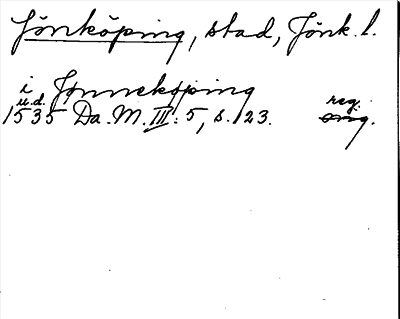 Jönköping, stad, Jönk. l.
i Jönneköping
u.d. reg.
1535 Da. M. III: 5, s. 123. orig.